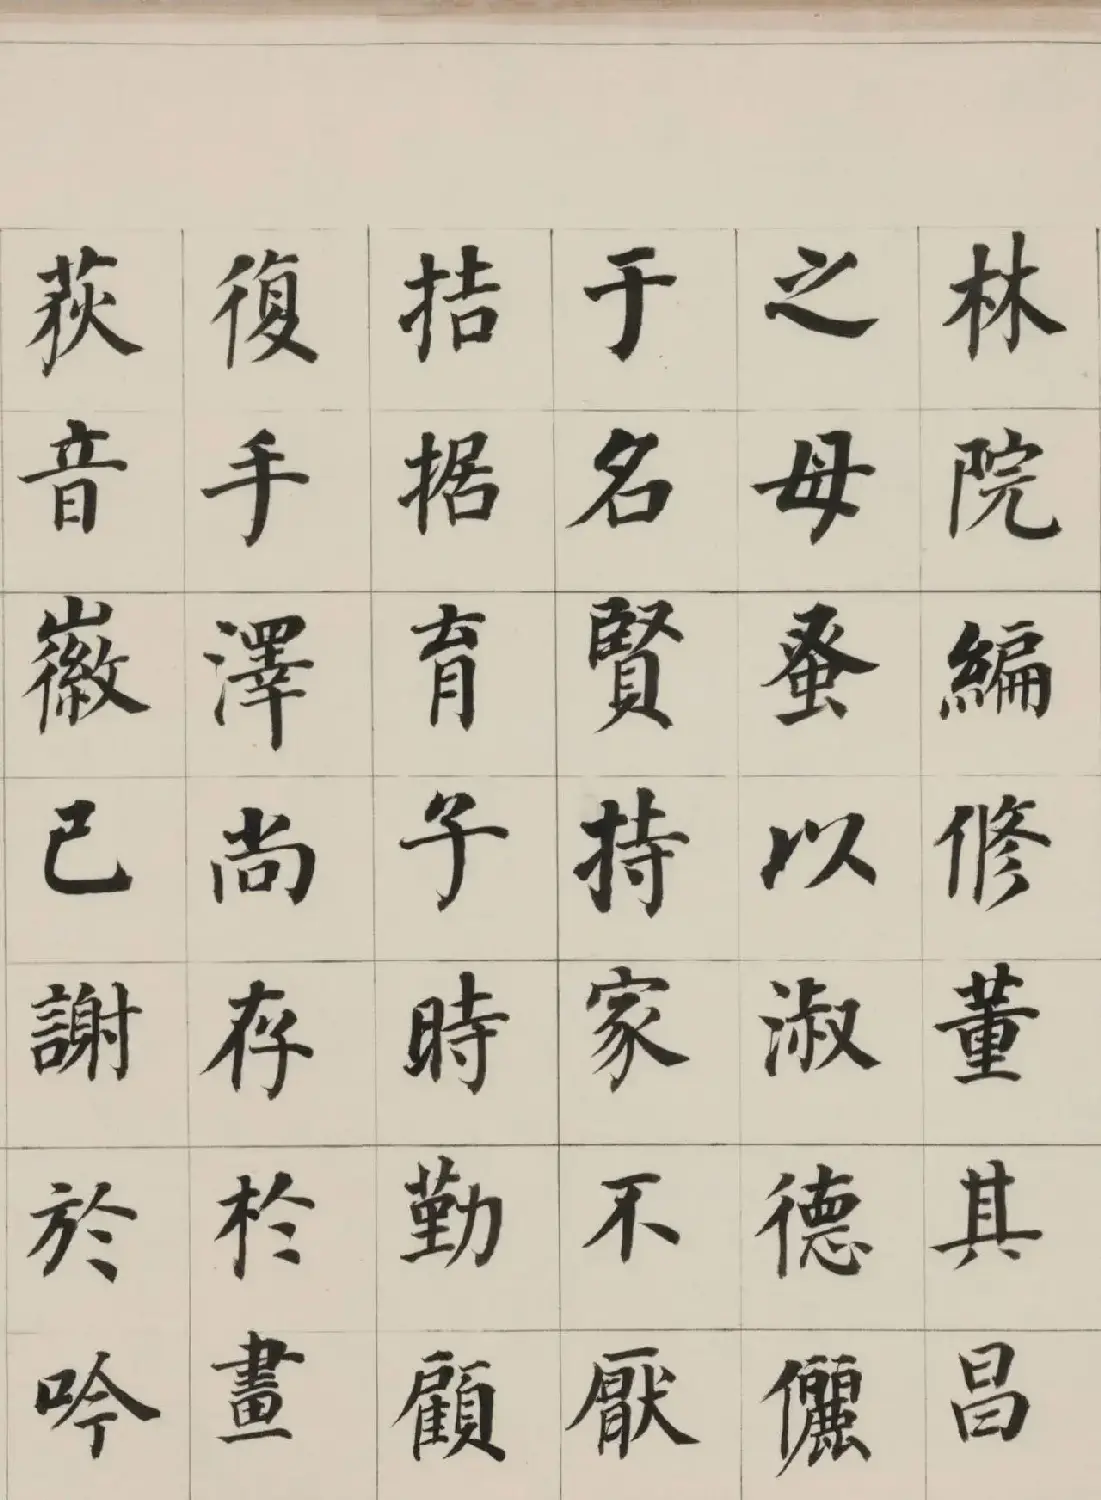 林院編修董其昌
之母蚤以淑德儷
于名賢持家不厭
拮据育子時勤顧
復手澤尚存於畫
荻音徽已謝於吟